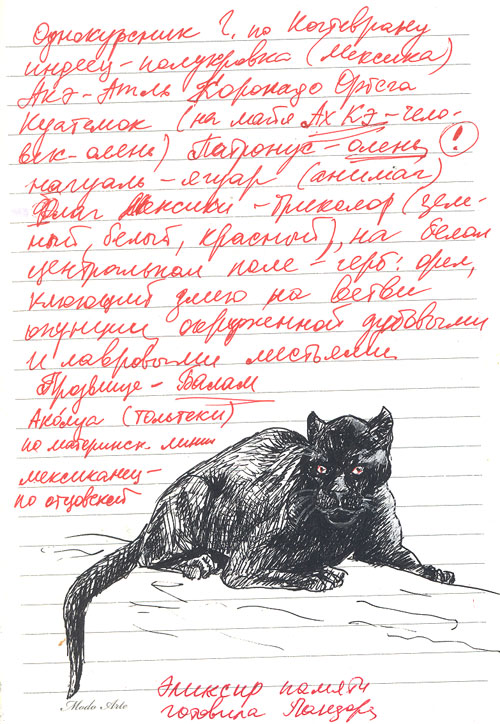 Однокурсник Г. по Когтеврану
индеец-полукровка (Мексика)
Акэ-Атль Коронадо Ортега
Куатемок (на майя Ах Кэ - чело-
век-олень) Патронус - олень (!)
нагуаль - ягуар (анимаг)
Флаг Мексики - триколор (зеле-
ный, белый, красный), на белом
центральном поле - герб: орел,
клюющий змею на ветви
опунции, окруженной дубовыми
и лавровыми листьями
Прозвище - Балам
Аколуа (тольтеки)
по материнск. линии
мексиканец -
по отцовской
Modo Arte
Эликсир памяти
готовила Пандора